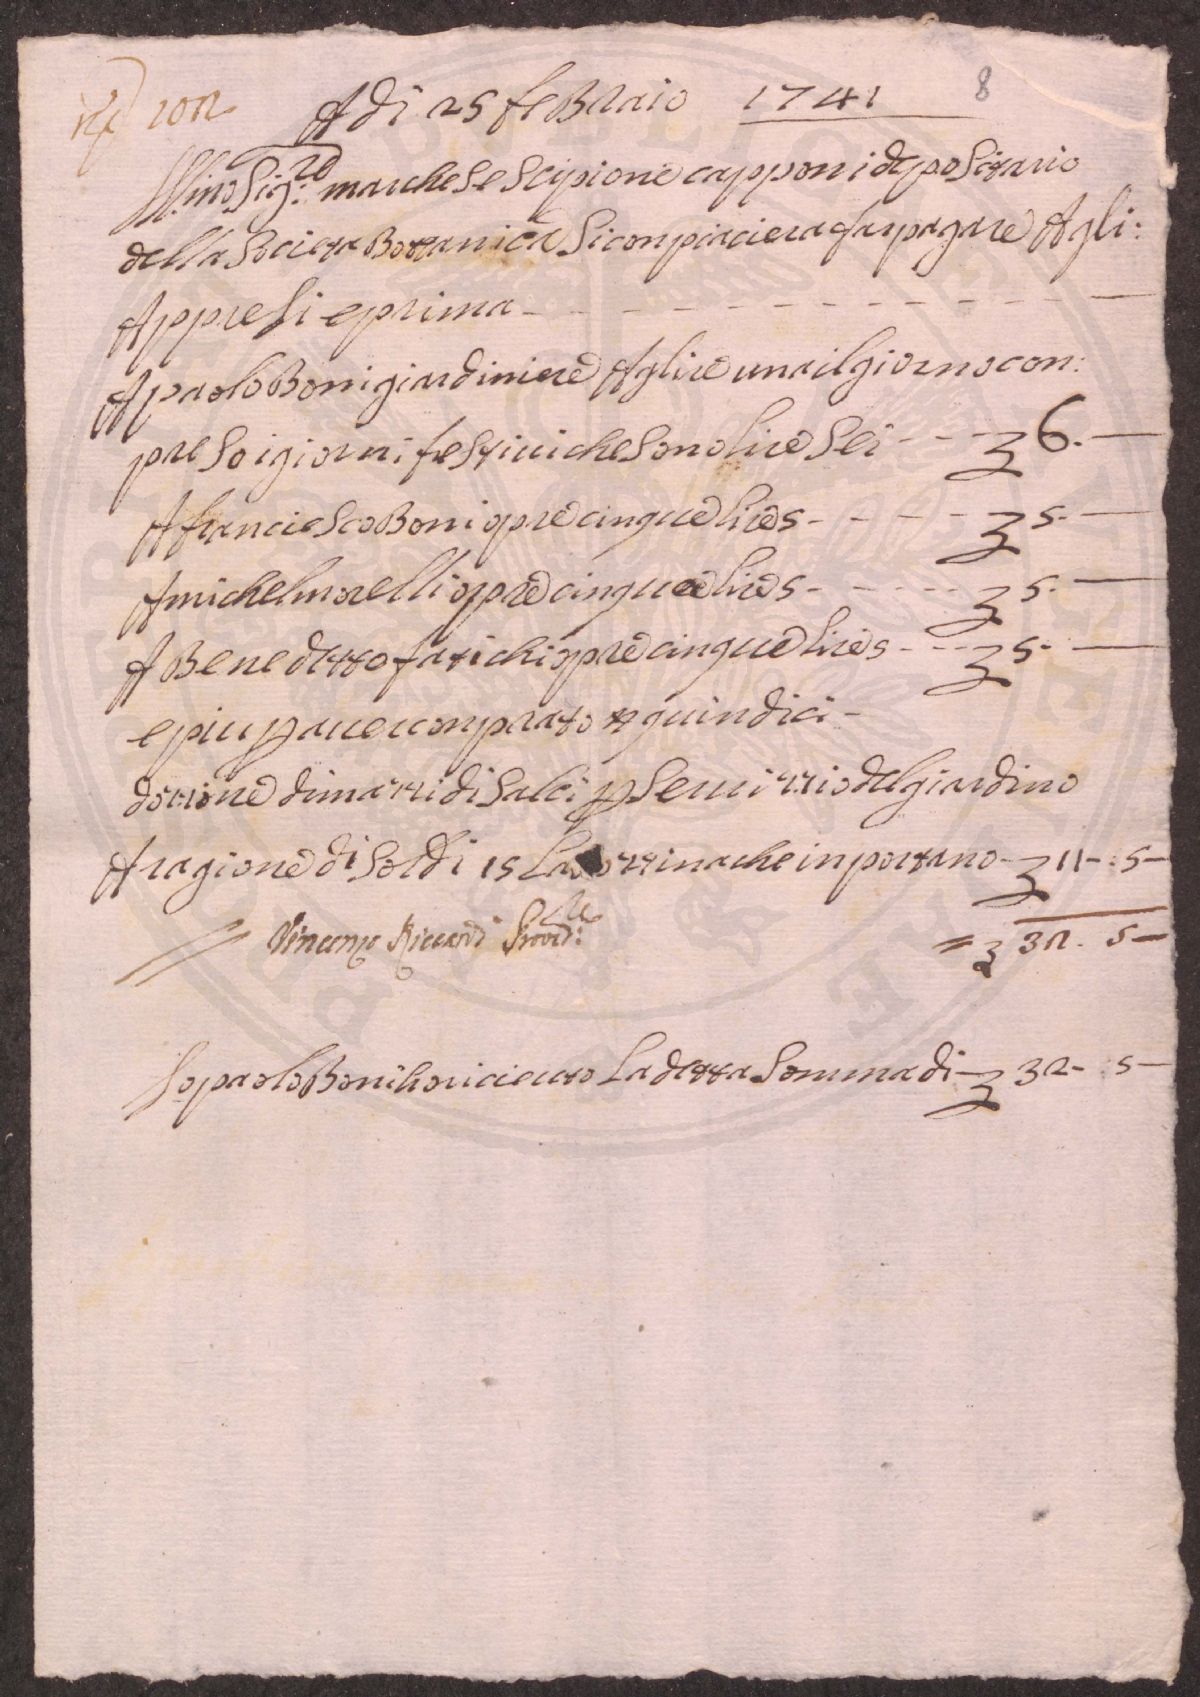 N° 102 Adi 25 feBraio 1741 8
Ill.mo Sig.re marchese Scipione capponi depositario
della Societa Botanica Si conpiaciera far pagare Agli:
Appresi e prima
A paolo Boni giardiniere A lire una il giorno con:
preso i giorni festivi che sono lire Sei 6.
A franciesco Boni opre cinque lire 5 5.
A michel morelli opre cinque lire 5 5.
A Benedetto fatichi opre cinque lire 5 5.
e piu p avere conprato n quindici
dozzine di mazzi di Salci p Servizzio del giardino
A ragione di Soldi 15 La dozzina che inportano 11 : 5
Vincenzo Riccardi Provd.re = 32. 5
Io paolo Boni ho riceuto La detta Somma di 32 : 5